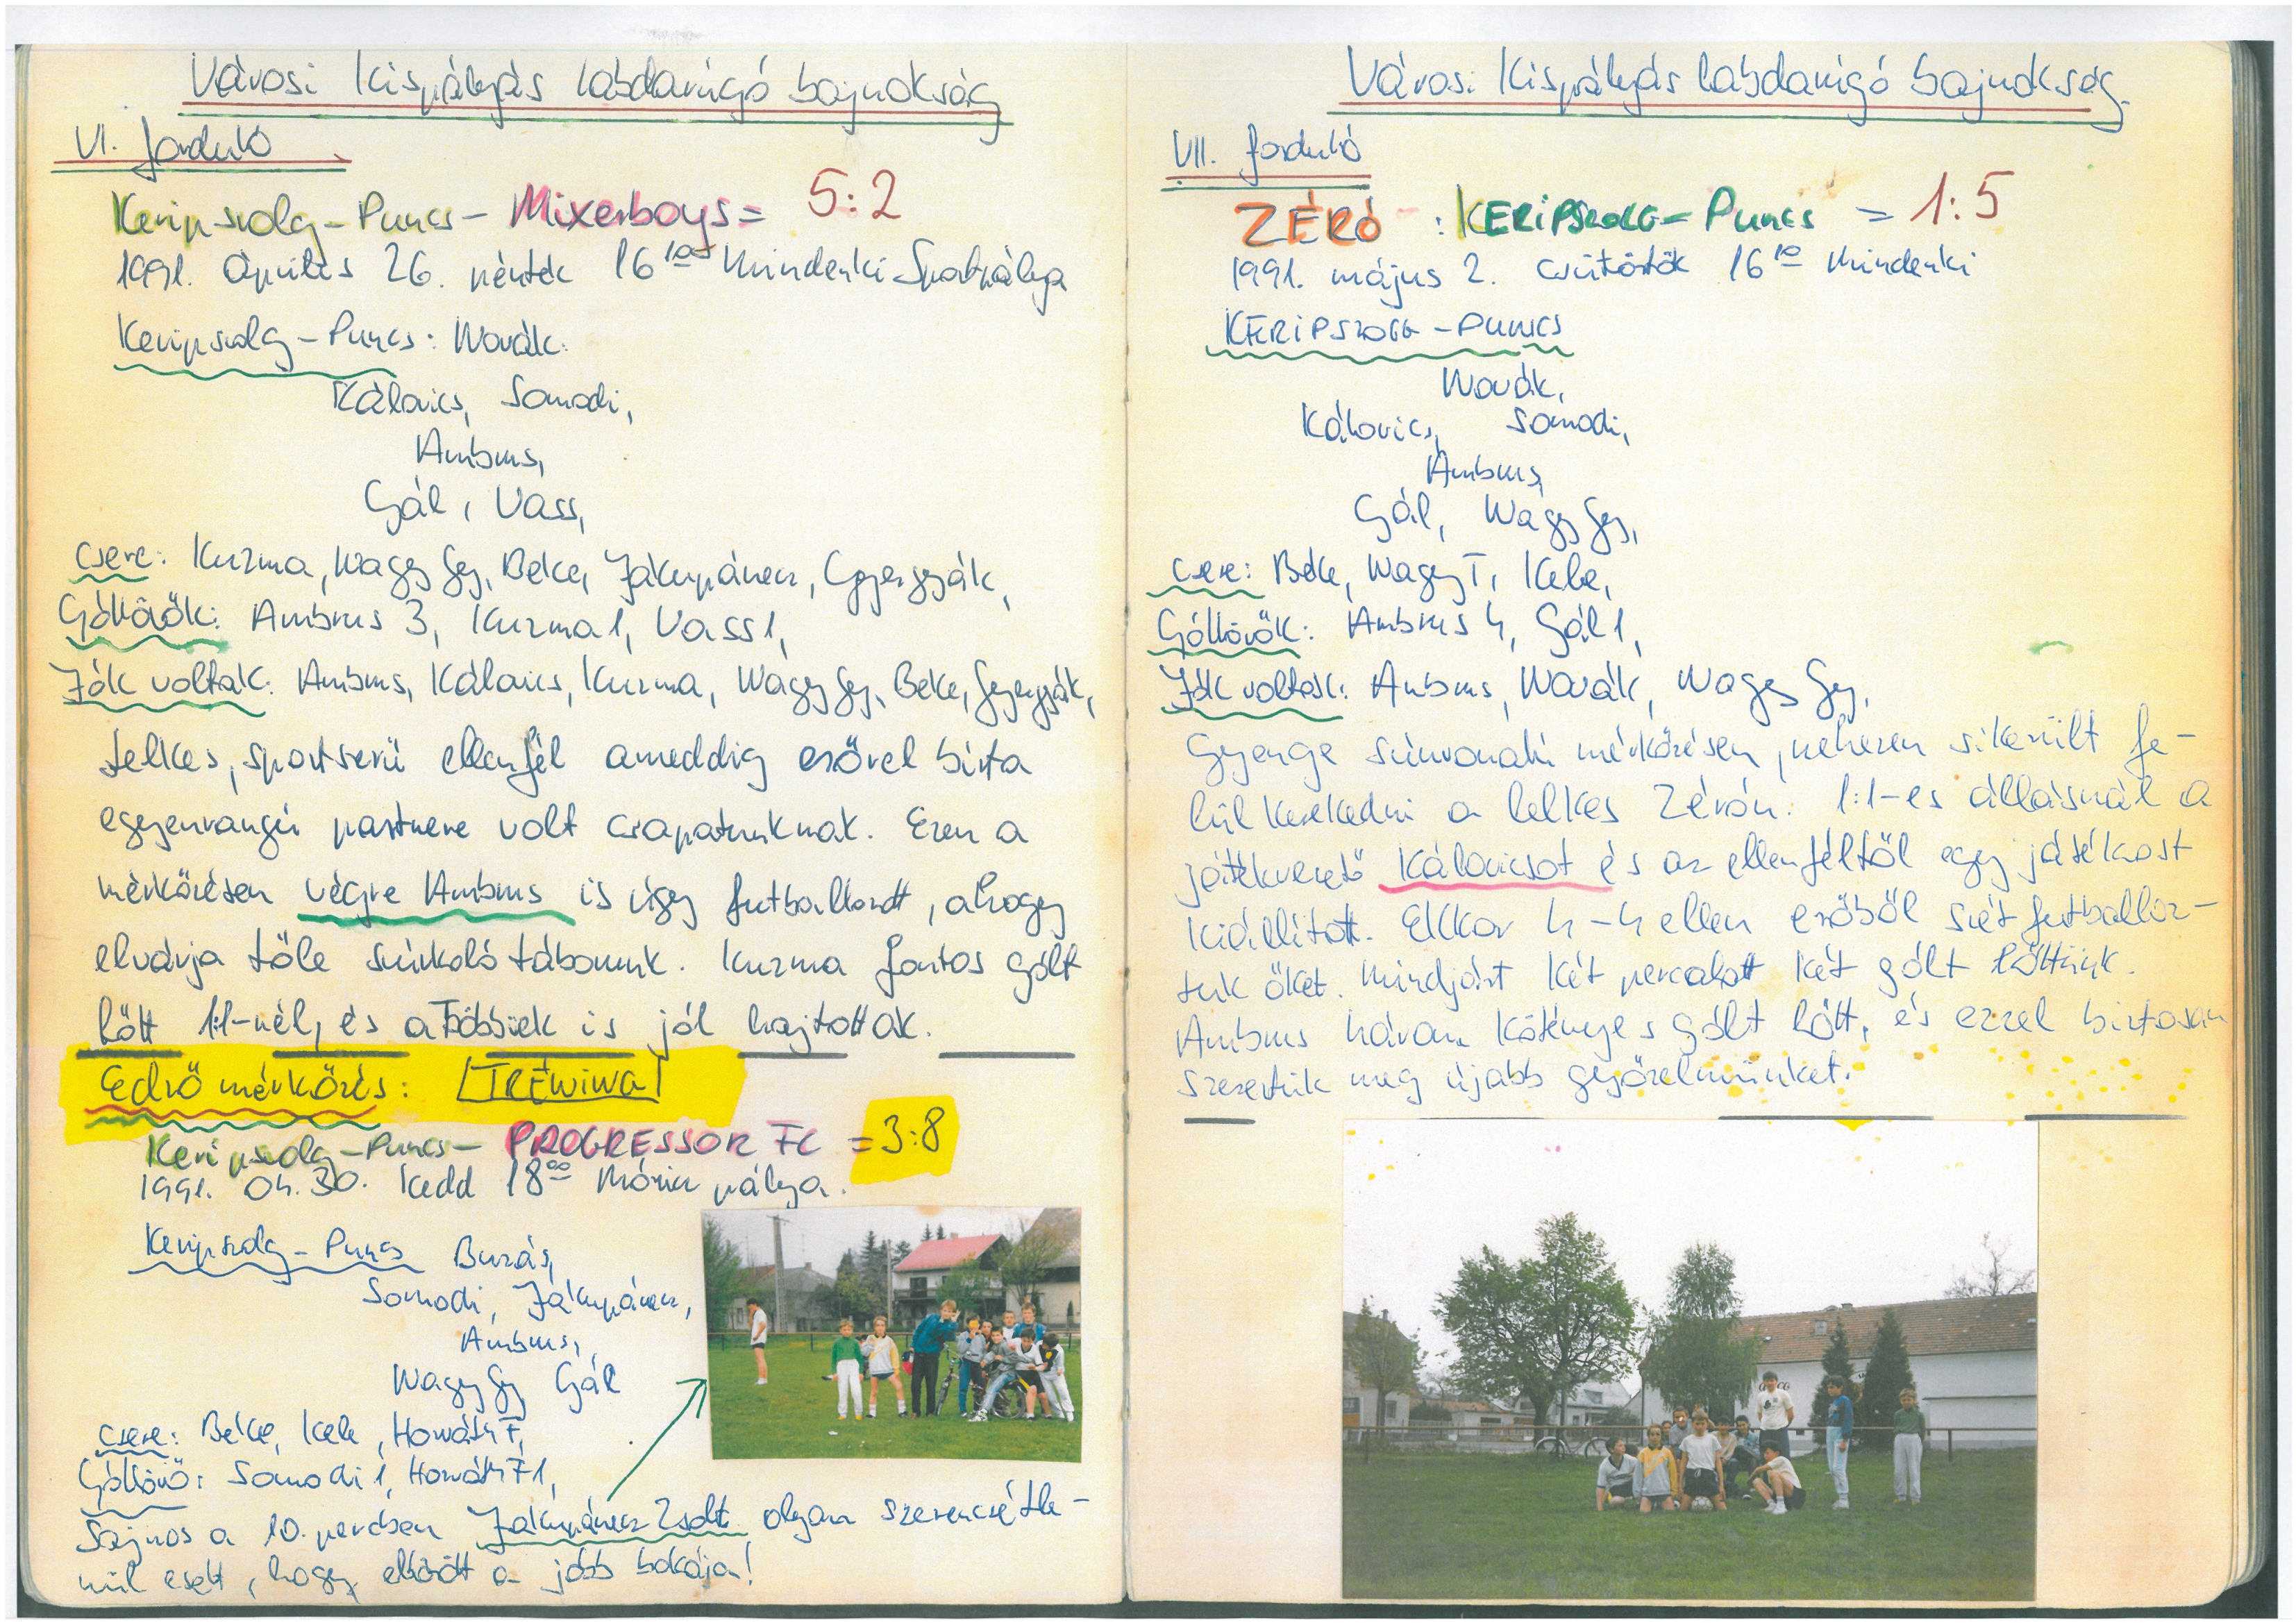 Városi Kispályás labdarúgó bajnokság
VI. forduló
Keripszolg - Puncs - Mixerboys = 5:2
1991. Április 26. péntek 16¹⁰ Mindenki Sportpálya
Keripszolg - Puncs: Novák.
Kálovics, Somodi,
Ambrus,
Gál, Vass,
Csere: Kuzma, Nagy Gy, Beke, Jákupánecz, Gyergyák,
Góllövők: Ambrus 3, Kuzma 1, Vass 1,
Jók voltak: Ambrus, Kálovics, Kuzma, Nagy Gy, Beke, Gyergyák,
Lelkes, sportserű ellenfél ameddig erővel bírta
egyenrangú partnere volt csapatunknak. Ezen a
mérkőzésen végre Ambrus is úgy futballozott, ahogy
elvárja tőle szurkoló táborunk. Kuzma fontos gólt
lőtt 1:1-nél, és a többiek is jól hajtottak.
Edző mérkőzés: TRÉNING
Keripszolg - Puncs - PROGRESSOR FC = 3:8
1991. 04. 30. Kedd 18⁰⁰ Móricz pálya.
Keripszolg - Puncs Buzás,
Somodi, Jákupánecz,
Ambrus,
Nagy Gy Gál
Csere: Béke, Kele, Horváth F,
Góllövő: Somodi 1, Horváth F 1,
Sajnos a 10. percben Jákupánecz Zsolt olyan szerencsétle-
nül esett, hogy eltörött a jobb bokája!
Városi Kispályás labdarúgó bajnokság
VII. forduló
ZÉRÓ : KERIPSZOLG - Puncs = 1:5
1991. május 2. csütörtök 16¹⁰ Mindenki
KERIPSZOLG - PUNCS
Novák,
Kálovics, Somodi,
Ambrus,
Gál, Nagy Gy,
Csere: Béke, Nagy T, Kele,
Góllövők: Ambrus 4, Gál 1,
Jók voltak: Ambrus, Novák, Nagy Gy,
Gyenge színvonalú mérkőzésen, nehezen sikerült fe-
lül kerekedni a lelkes Zérón. 1:1-es állásnál a
játékvezető Kálovicsot és az ellenféltől egy játékost
kiállított. Ekkor 4-4 ellen erőből szét futballoz-
tuk őket. Mindjárt két perc alatt két gólt lőttünk.
Ambrus három kötényes gólt lőtt, és ezzel biztosan
szereztük meg újabb győzelmünket.